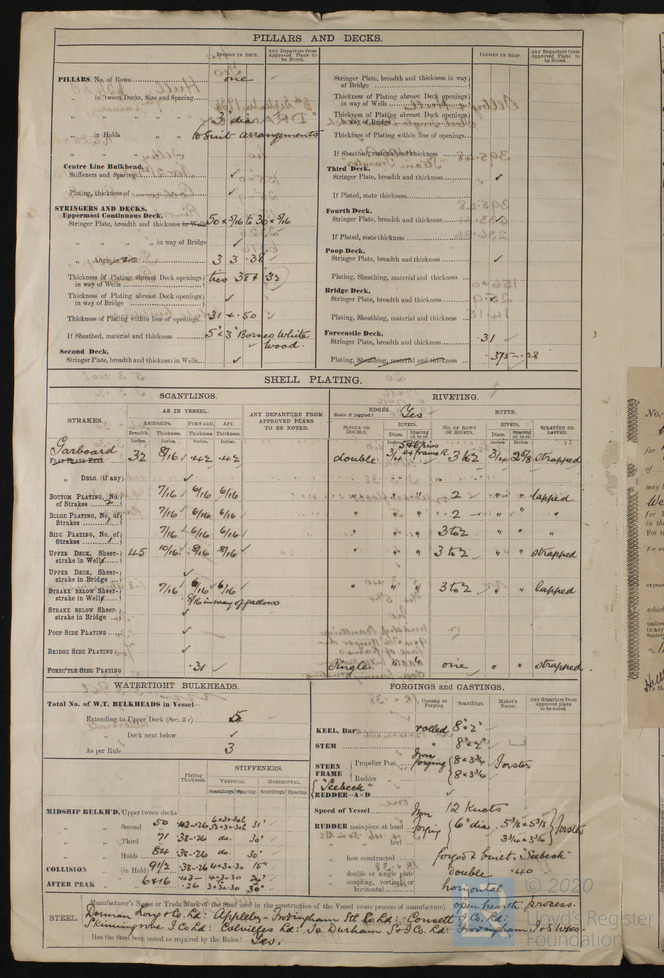 PILLARS AND DECKS.
INCHES IN SHIP.
Any Departure from Approved Plans to be Noted.
PILLARS, No. of Rows one
" in 'tween Decks, Size and Spacing
" " " " 3 dia
" in Holds " " to suit arrangements
" " " "
Centre Line Bulkhead.
Stiffeners and Spacing ✓
Plating, thickness of ✓
STRINGERS AND DECKS.
Uppermost Continuous Deck.
Stringer Plate, breadth and thickness in Wells 50 x 5/16 to 30 x 5/16
" " " " in way of Bridge ✓
" Angle in 3 3 .38 ✓
Thickness of Plating abreast Deck openings in way of Wells ties .38 x 33
Thickness of Plating abreast Deck openings in way of Bridge ✓
Thickness of Plating within line of openings .31 + .50 ✓
If Sheathed, material and thickness 5" x 3" Borneo White wood.
Second Deck.
Stringer Plate, breadth and thickness in Wells ✓
INCHES IN SHIP.
Any Departure from Approved Plans to be Noted.
Stringer Plate, breadth and thickness in way of Bridge
Thickness of Plating abreast Deck openings in way of Wells
Thickness of Plating abreast Deck openings in way of Bridge
Thickness of Plating within line of openings
If Sheathed, material and thickness
Third Deck.
Stringer Plate, breadth and thickness ✓
If Plated, state thickness
Fourth Deck.
Stringer Plate, breadth and thickness ✓
If Plated, state thickness
Poop Deck.
Stringer Plate, breadth and thickness ✓
Plating, Sheathing, material and thickness
Bridge Deck.
Stringer Plate, breadth and thickness
Plating, Sheathing, material and thickness
Forecastle Deck.
Stringer Plate, breadth and thickness .31 ✓
Plating, Sheathing, material and thickness .375 - .28
SHELL PLATING.
SCANTLINGS.
RIVETING.
STRAKES.
AS IN VESSEL.
AMIDSHIPS. FORWARD. AFT.
Breadth. Thickness Thickness Thickness
Inches. Inches. Inches. Inches.
ANY DEPARTURE FROM APPROVED PLANS TO BE NOTED.
EDGES. State if joggled? Yes
BUTTS.
SINGLE OR DOUBLE.
RIVETS.
Diam. Spacing cr. to cr.
NO. OF ROWS OF RIVETS.
RIVETS.
Diam. Spacing cr. to cr.
STRAPPED OR LAPPED.
Garboard
FLAT PLATE KEEL 32 8/16 .42 .42 double 3/4 3 & 2 3/4 2 5/8 strapped
" DBLG. (if any) ✓
BOTTOM PLATING, No. of Strakes 7/16 6/16 6/16 " " " 2 " " lapped
BILGE PLATING, No. of Strakes 7/16 6/16 6/16 " " " 2 " " "
SIDE PLATING, No. of Strakes 7/16 6/16 6/16 " " " 3 to 2 " " "
UPPER DECK, Sheer-strake in Wells 45 10/16 8/16 8/16 " " " 3 to 2 " " strapped
UPPER DECK, Sheer-strake in Bridge ✓
STRAKE BELOW Sheer-strake in Wells 7/16 6/16 6/16 " " " 3 to 2 " " lapped
8/16 in way of gallows
STRAKE BELOW Sheer-strake in Bridge ✓
POOP SIDE PLATING ✓
BRIDGE SIDE PLATING ✓
FORECASTLE SIDE PLATING .31 ✓ Single " " one " " strapped
WATERTIGHT BULKHEADS.
Total No. of W.T. BULKHEADS in Vessel
Extending to Upper Deck (Sec. 3 c) 5
" Deck next below ✓
As per Rule 3
Plating Thickness.
STIFFENERS.
VERTICAL. HORIZONTAL.
Scantlings Spacing. Scantlings Spacing.
MIDSHIP BULKH'D, Upper tween decks
" " Second " 50 .42-.26 31"
" " Third " 71 .38-.26 do. 30"
" " Holds 84 .38-.26 do. 30"
COLLISION " (in Hold) 91 1/2 .38-.26 4x3x.30 15"
AFTER PEAK " 6+16 .26 3x3x.30 30"
FORGINGS and CASTINGS.
Casting or Forging.
Scantlings.
Maker's Name.
Any departure from approved plans to be noted.
KEEL, Bar rolled 8" x 2"
STEM " 8" x 2"
STERN FRAME Propeller Post Iron forging 8 x 3 3/4 Forster
Rudder " 8 x 3 3/4
"Seebeck"
RUDDER A x D
Speed of Vessel 12 Knots
RUDDER mainpiece at head Iron forging 6" dia. 5 3/8 x 5 3/8 Forster
" " heel 3 3/4 x 3 3/4
" how constructed forged & built. "Seebeck"
" double or single plate double .40
" coupling, vertical or horizontal horizontal
STEEL.
Manufacturer's Name or Trade Mark of the Steel used in the construction of the Vessel (state process of manufacture) open hearth process.
Dorman Long & Co Ld: Appleby-Frodingham Stl Co Ld: Consett I Co. Ld:
Skinningrove I Co Ld: Colvilles Ld: So Durham S & I Co. Ld: Frodingham I & S Wks.
Has the Steel been tested as required by the Rules? Yes.
© 2020
Lloyd's Register
Foundation